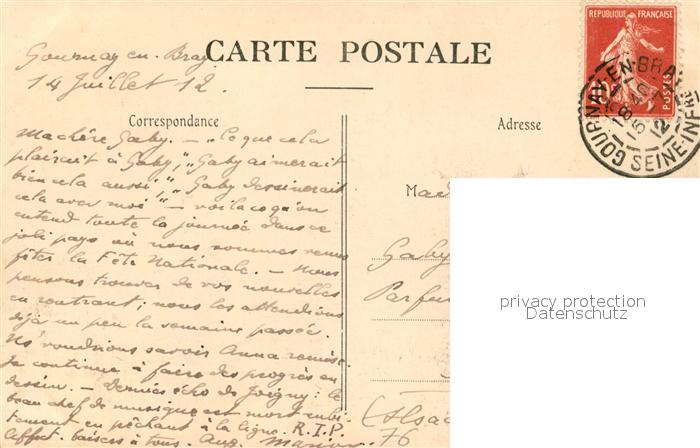 CARTE POSTALE
Gournay-en-Bray
14 Juillet 12.
RÉPUBLIQUE FRANÇAISE
10c
POSTES
GOURNAY-EN-BRAY
SEINE-INFRE
Correspondance
Adresse
Ma chère Gaby. — "Ce que cela
plairait à Gaby", "Gaby aimerait
bien cela aussi", "Gaby dessinerait
cela avec moi" — voilà ce qu'on
entend toute la journée dans ce
joli pays où nous sommes venus
fêter la Fête Nationale. — Nous
pensons trouver de vos nouvelles
en rentrant; nous les attendions
déjà un peu la semaine passée.
Ns voudrions savoir Anna remise.
Je continue à faire des progrès en
dessin. — Dernier écho de Joigny: le
beau chef de musique est mort subi-
tement en pêchant à la ligne. R.I.P.
Affect. baisers à tous.
Mad
Gaby
Parfum
(Alsac
76
privacy protection
Datenschutz